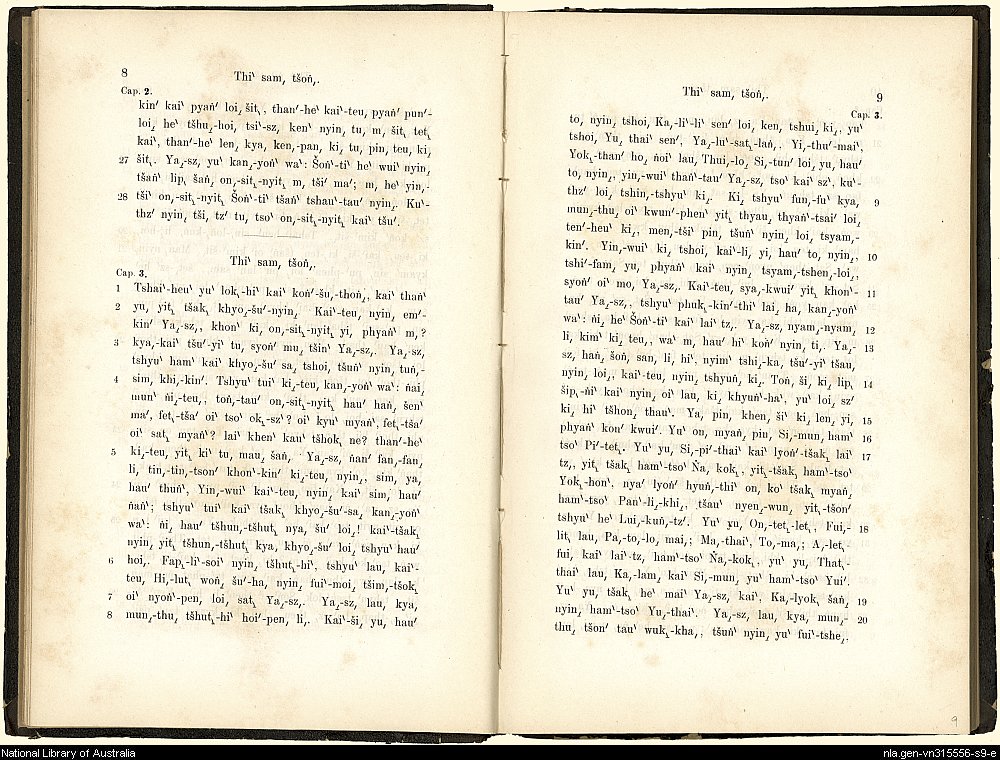 8
Thiˋ sam, tšoṅ,.
Cap. 2.
kin′ kaiˋ pyaṅ′ loi, šit˛, than′-heˋ kaiˋ-teu, pyaṅ′ pun′-
loi, heˋ tšhu,-hoi, tsiˋ-sz, kenˋ nyin, tu, m, šit˛ tet˛
kaiˋ, than′-heˋ len, kya, ken,-pan, ki, tu, pin, teu, ki,
27 šit˛. Ya,-sz, yuˋ kan,-yoṅˋ waˋ: Šoṅˋ-tiˋ heˋ wuiˋ nyin,
tšaṅˋ lip˛ šaṅ, on,-sit˛-nyit˛ m, tšiˊ maˊ; m, heˋ yin,-
28 tšiˋ on,-sit˛-nyit˛ Šoṅˋ-tiˋ tšaṅˋ tshauˋ-tau′ nyin,. Kuˋ-
thz′ nyin, tši, tz′ tu, tsoˋ on,-sit˛-nyit˛ kaiˋ tšu′.
Thiˋ sam, tšoṅ,.
Cap. 3.
1 Tshaiˋ-heuˋ yuˋ lok˛-hiˋ kaiˋ koṅ′-šu,-thoṅ,, kaiˋ thaṅˋ
2 yu, yit˛ tšak˛ khyo,-šu′-nyin, Kaiˋ-teu, nyin, em′-
kin′ Ya,-sz,, khonˋ ki, on,-sit˛-nyit˛ yi, phyaṅˋ m,?
3 kya,-kaiˋ tšu′-yiˋ tu, syoṅ′ mu, tšinˋ Ya,-sz,. Ya,-sz,
tshyuˋ hamˋ kaiˋ khyo,-šu′ sa, tshoi, tšuṅˋ nyin, tuṅ,-
4 sim, khi,-kin′. Tshyuˋ tuiˋ ki,-teu, kan,-yoṅˋ waˋ: ṅai,
munˋ ṅi,-teu,, toṅ,-tau′ on,-sit˛-nyit˛ hau′ haṅ, šenˋ
ma′, fet˛-tša′ oiˋ tsoˋ ok˛-szˋ? oiˋ kyuˋ myaṅˋ, fet˛-tšaˋ
oiˋ sat˛ myaṅˋ? laiˋ khenˋ kauˋ tšhok˛ ne? than′-heˋ
5 ki,-teu, yit˛ kiˋ tu, mau, šaṅ,. Ya,-sz, ṅan′ fan,-fan,
li, tin,-tin,-tson′ khonˋ-kin′ ki,-teu, nyin,, sim, ya,
hau′ thuṅˋ, Yin,-wuiˋ kaiˋ-teu, nyin, kaiˋ sim, hau′
ṅaṅˋ; tshyuˋ tuiˋ kaiˋ tšak˛ khyo,-šu′-sa, kan,-yoṅˋ
waˋ: ṅi, hau′ tšhun,-tšhut˛ nya, šu′ loi,! kaiˋ-tšak˛
nyin, yit˛ tšhun,-tšhut˛ kya, khyo,-šu′ loi, tshyuˋ hau′
6 hoi,. Fap˛-liˋ-soiˋ nyin, tšhut˛-hiˋ, tshyuˋ lau, kaiˋ-
teu, Hi,-lut˛ woṅ, šu′-ha, nyin, fuiˋ-moi, tšim,-tšok˛
7 oiˋ nyoṅˋ-pen, loi, sat˛ Ya,-sz,. Ya,-sz, lau, kya,
8 mun,-thu, tšhut˛-hiˋ hoi′-pen, li,. Kaiˋ-ši, yu, hau′
Thiˋ sam, tšoṅ,.
9
Cap. 3.
to, nyin, tshoi, Ka,-liˋ-liˋ sen′ loi, ken, tshui, ki,, yuˋ
tshoi, Yu, thaiˋ sen′, Ya,-luˋ-sat˛-laṅ,. Yi,-thu′-maiˋ,
Yok˛-than′ ho, ṅoiˋ lau, Thui,-lo, Si,-tunˋ loi, yu, hau′
to, nyin,, yin,-wuiˋ thaṅˋ-tauˋ Ya,-sz, tsoˋ kaiˋ szˋ, kuˋ-
9 thz′ loi, tshin,-tshyuˋ ki,. Ki, tshyuˋ fun,-fuˋ kya,
mun,-thu, oiˋ kwun′-phenˋ yit˛ thyau, thyaṅˋ-tsaiˋ loi,
ten′-heuˋ ki,, men,-tšiˋ pin, tšuṅˋ nyin, loi, tsyam,-
10 kin′. Yin,-wuiˋ ki, tshoi, kaiˋ-li, yi, hau′ to, nyin,,
tshiˋ-fam, yu, phyaṅˋ kaiˋ nyin, tsyam,-tshen,-loi,,
11 syoṅ′ oiˋ mo, Ya,-sz,. Kaiˋ-teu, sya,-kwui′ yit˛ khonˋ-
tau′ Ya,-sz,, tshyuˋ phuk˛-kin′-thiˋ lai, ha, kan,-yoṅˋ
12 waˋ: ṅi, heˋ Šoṅˋ-tiˋ kaiˋ laiˋ tz,. Ya,-sz, nyam,-nyam,
13 li, kimˋ ki, teu,, waˋ m, hau′ hiˋ koṅ′ nyin, ti,. Ya,-
sz, haṅ, šoṅ, san, li, hiˋ, nyimˋ tshi,-ka, tšu′-yiˋ tšau,
14 nyin, loi,, kaiˋ-teu, nyin, tshyuṅ, ki,. Toṅ, ši, ki, lip˛
šip˛-ṅiˋ kaiˋ nyin, oiˋ lau, ki, khyuṅˋ-haˋ, yuˋ loi, sz′
15 ki, hiˋ tšhon, thauˋ. Ya, pin, khen, šiˋ ki, len, yi,
16 phyaṅˋ kon′ kwui′. Yuˋ on, myaṅ, pin, Si,-mun, hamˋ
17 tsoˋ Pi′-tet˛. Yuˋ yu, Si,-piˋ-thai kaiˋ lyoṅ′-tšak˛ laiˋ
tz,, yit˛ tšak˛ hamˋ-tsoˋ Ña, kok˛, yit˛-tšak˛ hamˋ-tsoˋ
Yok˛-honˋ, nya′ lyoṅ′ hyuṅ,-thiˋ on, koˋ tšak˛ myaṅ,
hamˋ-tsoˋ Paṅˋ-li,-khi,, tšauˋ nyen,-wun, yit˛-tšon′
18 tshyuˋ heˋ Lui,-kuṅ,-tz′. Yuˋ yu, On,-tet˛-let˛, Fui,-
lit˛ lau, Pa,-to,-lo, mai,; Ma,-thaiˋ, To,-ma,; A,-let˛
fui, kaiˋ laiˋ-tz, hamˋ-tsoˋ Ña,-kok˛, yuˋ yu, That˛-
thaiˋ lau, Ka,-lam, kaiˋ Si,-mun, yuˋ hamˋ-tsoˋ Yui′.
19 Yuˋ yu, tšak˛ heˋ maiˋ Ya,-sz, kaiˋ, Ka,-lyok˛ šaṅ,
20 nyin, hamˋ-tsoˋ Yu,-thaiˋ. Ya,-sz, lau, kya, mun,-
thu, tšonˋ tauˋ wuk˛-kha,, tšuṅˋ nyin, yuˋ fuiˋ-tshe,.
9
National Library of Australia
nla.gen-vn315556-s9-e